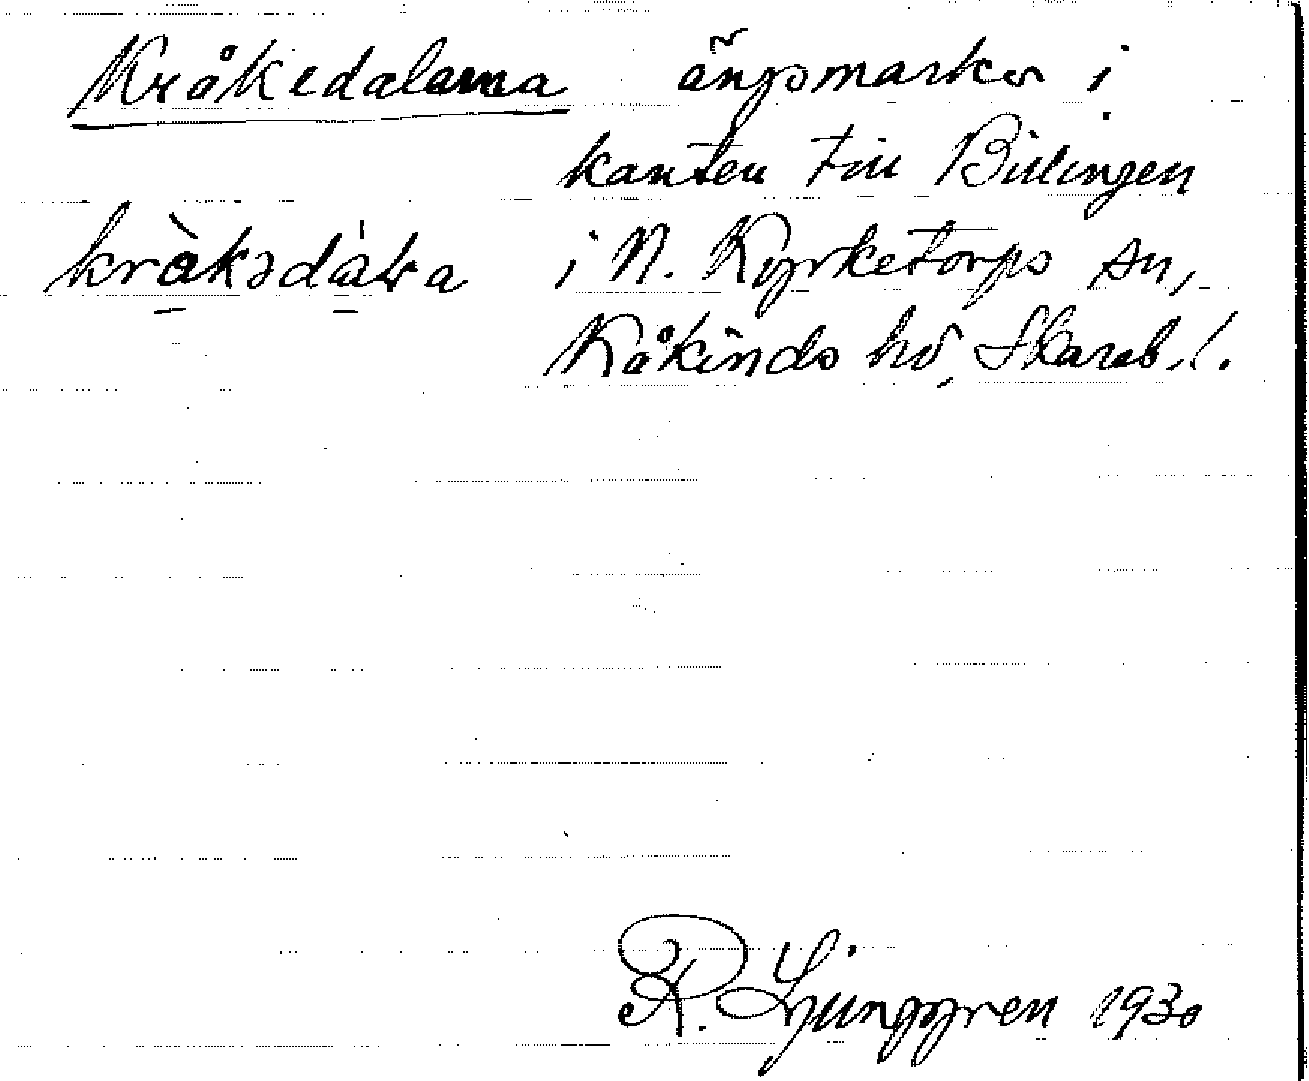 Kråkedalarna ängsmarker i
kanten till Billingen
kråkədaɫa i N. Kyrketorps sn,
Kåkinds hd, Skarab. l.
R. Ljunggren 1930